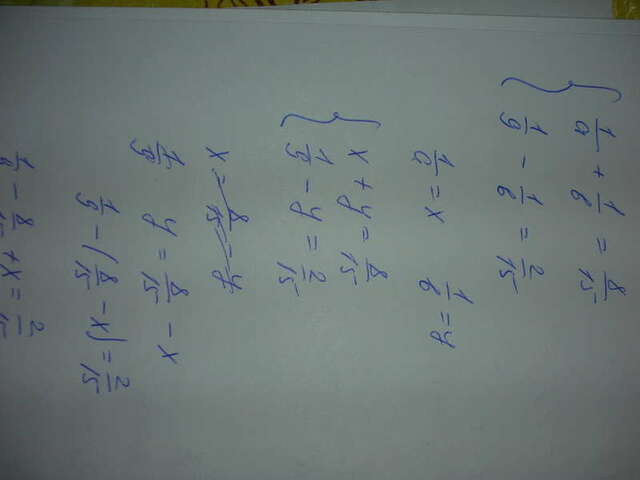 1/a + 1/b = 8/15
1/9 - 1/b = 2/15
1/a = x 1/b = y
x + y = 8/15
1/9 - y = 2/15
x = 8/15 - y
1/9 y = 8/15 - x
1/9 - (8/15 - x) = 2/15
- 8/15 + x = 2/15